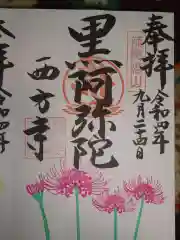 奉拝
令和四年
九月二十四日
黒阿弥陀
西方寺
拝
令和四